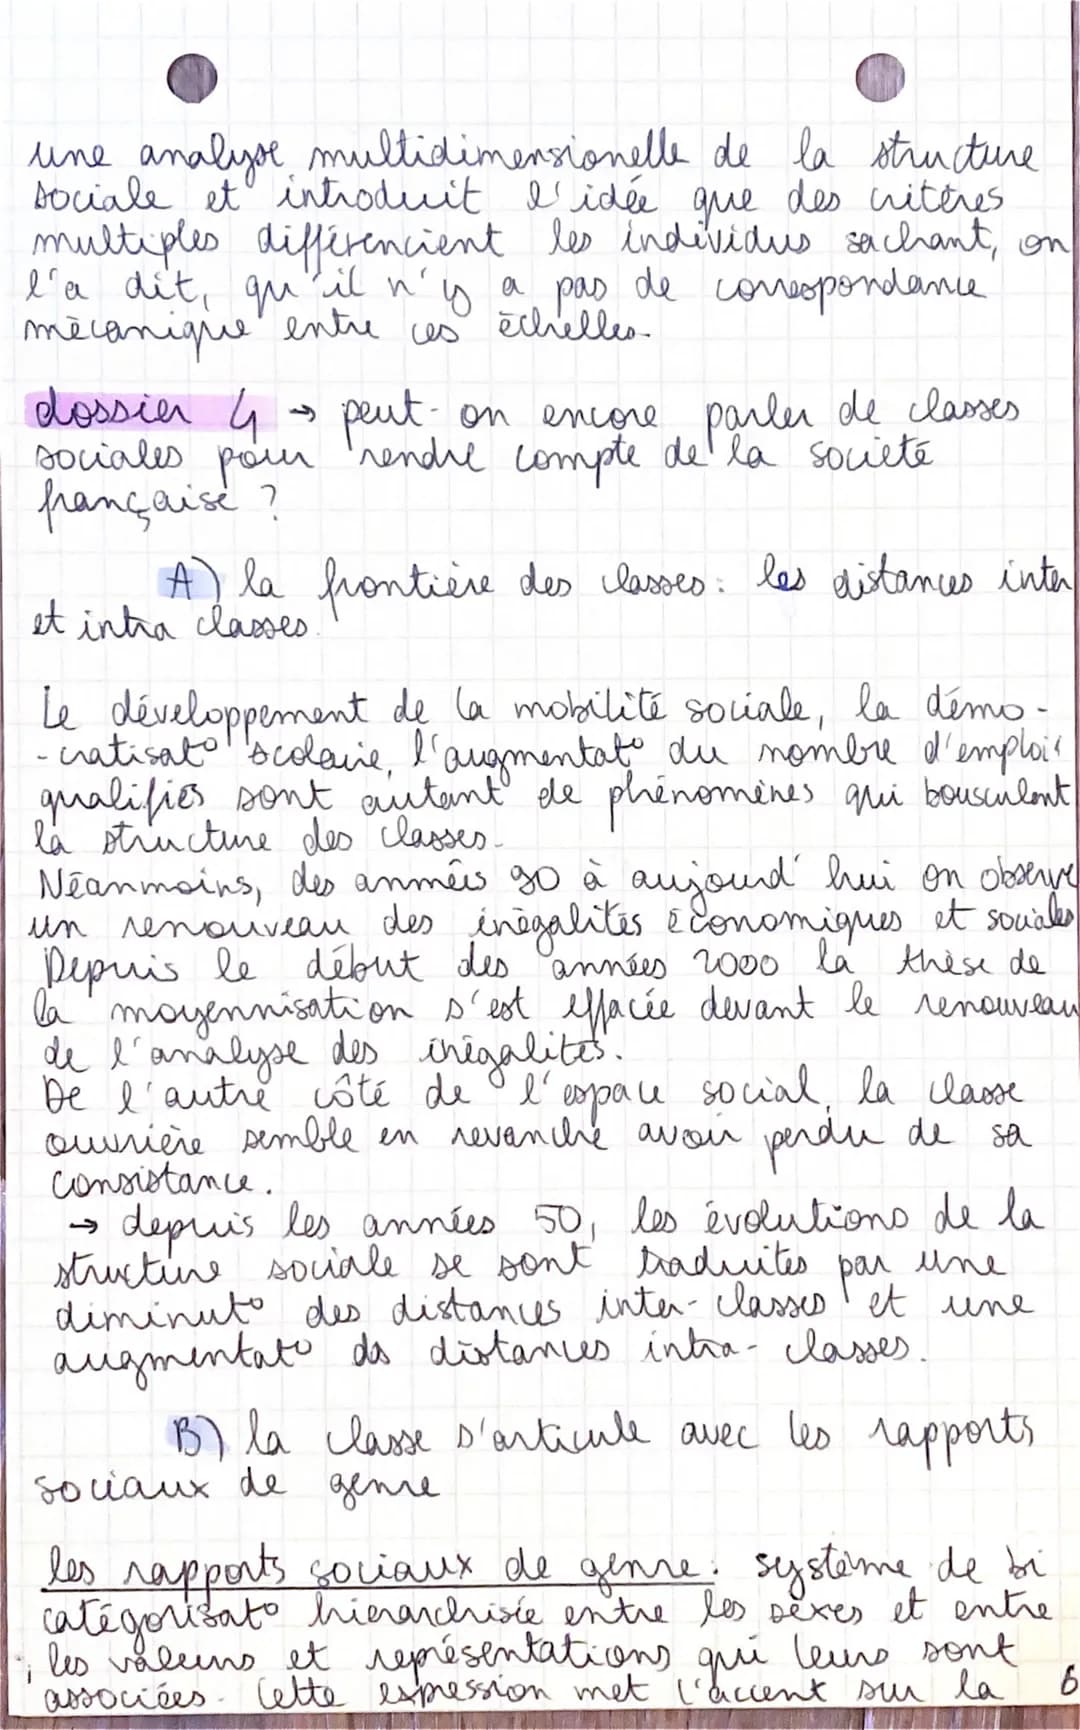 une analyse multidimensionelle de la structure
sociale et introduit l'idée que des critères
multiples différencient les individus sachant, on
l'a dit, qu'il n'y a pas de correspondance
mécanique entre ces échelles.
dossier 4 → peut-on encore parler de classes
sociales pour rendre compte de la société
française ?
A) la frontière des classes : les distances inter
et intra classes.
Le développement de la mobilité sociale, la démo-
-cratisat° scolaire, l'augmentat° du nombre d'emplois
qualifiés sont autant de phénomènes qui bousculent
la structure des classes.
Néanmoins, des années 90 à aujourd'hui on observe
un renouveau des inégalités économiques et sociales
Depuis le début des années 2000 la thèse de
la moyennisation s'est effacée devant le renouveau
de l'analyse des inégalités.
De l'autre côté de l'espace social, la classe
ouvrière semble en revanche avoir perdu de sa
consistance.
→ depuis les années 50, les évolutions de la
structure sociale se sont traduites par une
diminut° des distances inter-classes et une
augmentat° ds distances intra-classes.
B) la classe s'articule avec les rapports
sociaux de genre
les rapports sociaux de genre : système de bi
catégorisat° hierarchisée entre les sexes et entre
les valeurs et représentations qui leurs sont
associées. Cette expression met l'accent sur la
6